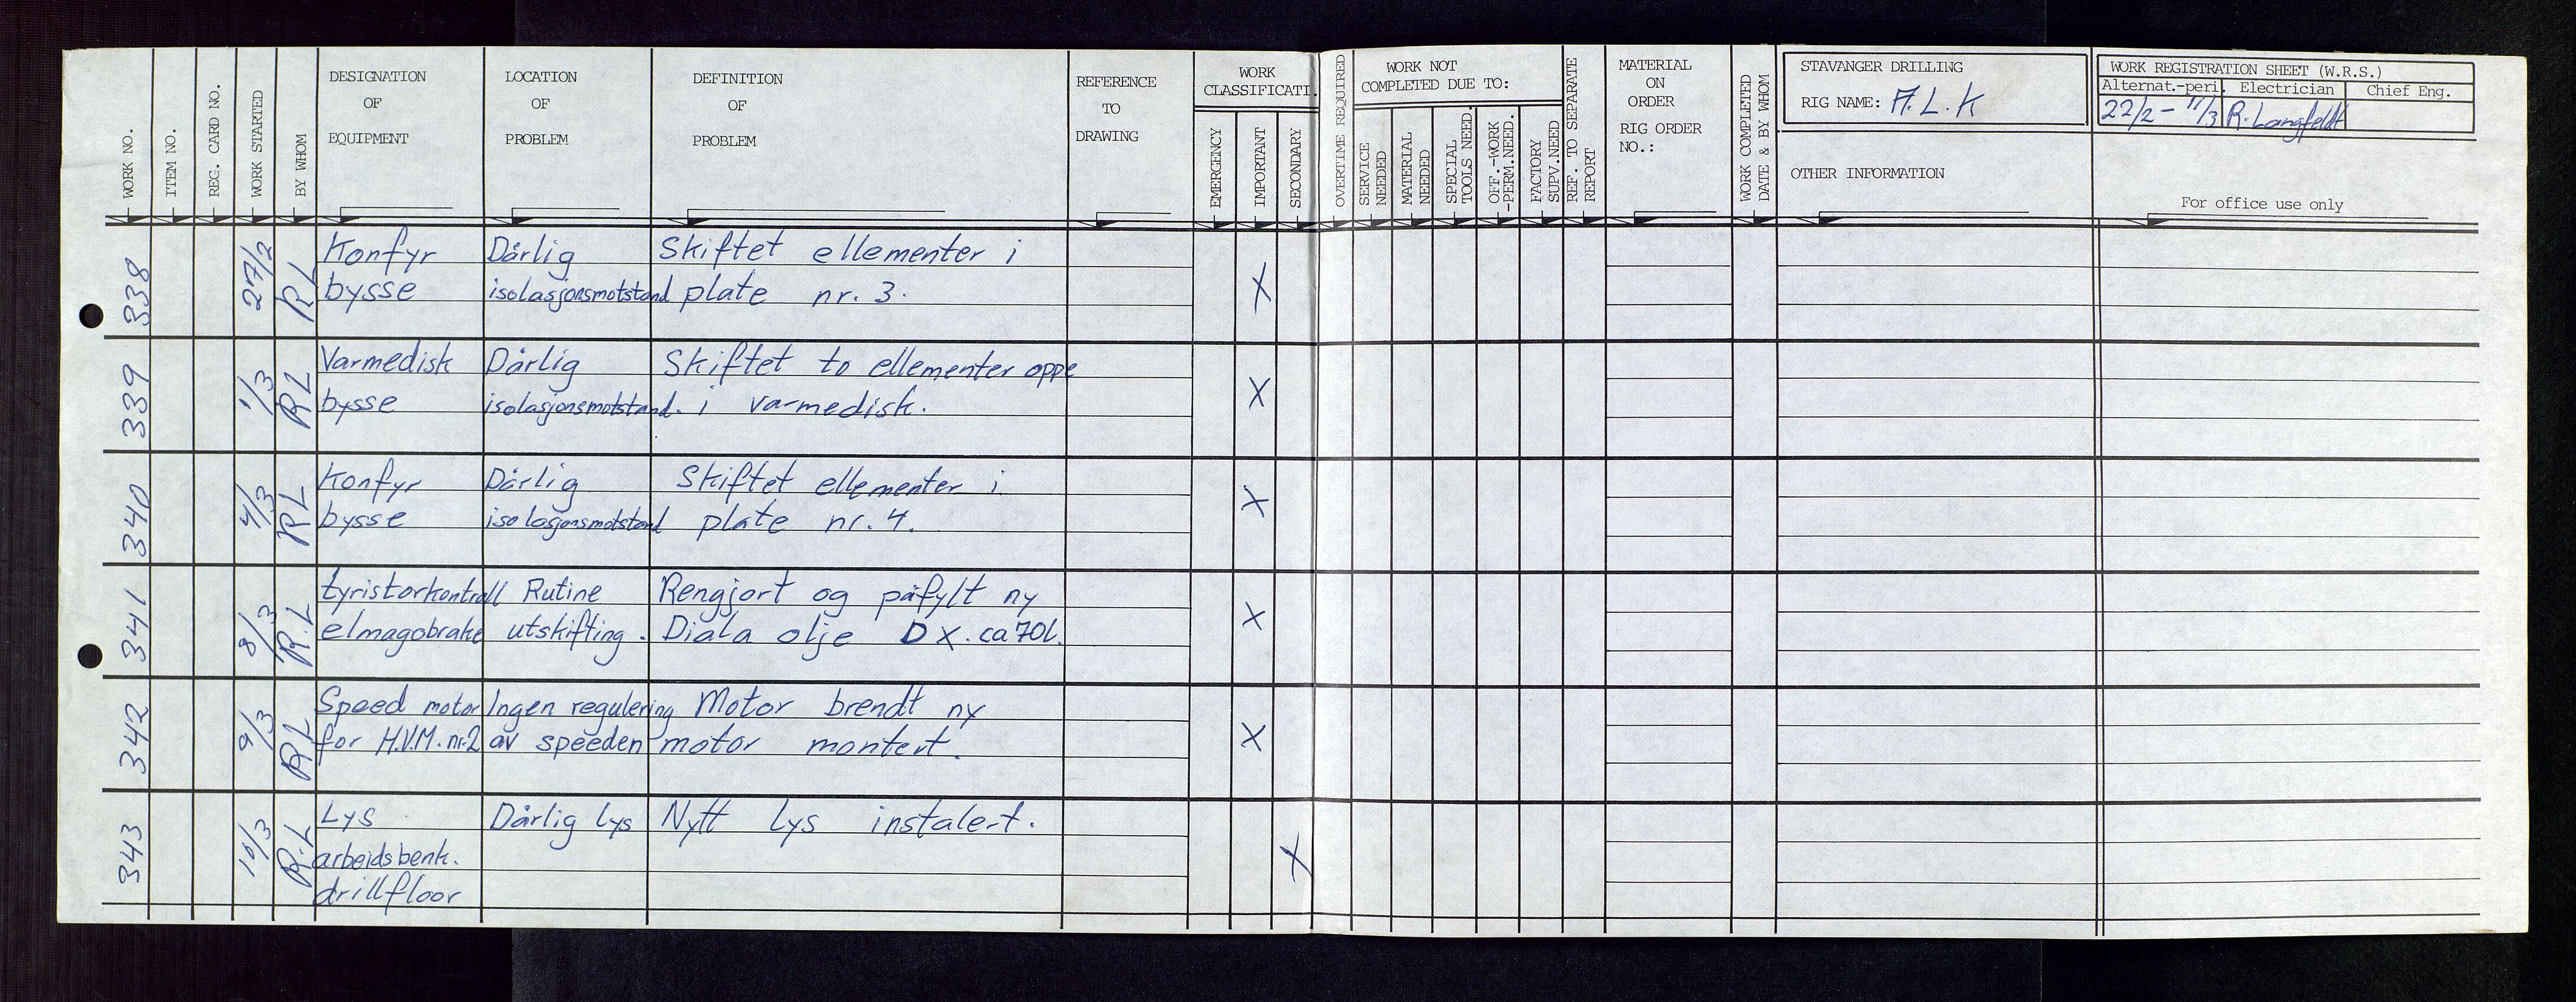 WORK NO.
ITEM NO.
REG. CARD NO.
WORK STARTED
BY WHOM
DESIGNATION
OF
EQUIPMENT
LOCATION
OF
PROBLEM
DEFINITION
OF
PROBLEM
REFERENCE
TO
DRAWING
WORK
CLASSIFICATI.
EMERGENCY
IMPORTANT
SECONDARY
OVERTIME REQUIRED
WORK NOT
COMPLETED DUE TO:
SERVICE
NEEDED
MATERIAL
NEEDED
SPECIAL
TOOLS NEED.
OFF.-WORK
-PERM.NEED.
FACTORY
SUPV.NEED
REF. TO SEPARATE
REPORT
MATERIAL
ON
ORDER
RIG ORDER
NO.:
WORK COMPLETED
DATE & BY WHOM
STAVANGER DRILLING
RIG NAME: A.L.K
OTHER INFORMATION
WORK REGISTRATION SHEET (W.R.S.)
Alternat.-peri. Electrician Chief Eng.
22/2 - 11/3 R. Langfeldt
For office use only
338 27/2 RL Konfyr Dårlig Skiftet ellementer i X
bysse isolasjonsmotstand plate nr. 3.
339 1/3 RL Varmedisk Dårlig Skiftet to ellementer oppe X
bysse isolasjonsmotstand. i varmedisk.
340 4/3 RL Konfyr Dårlig Skiftet ellementer i X
bysse isolasjonsmotstand plate nr. 4.
341 8/3 R.L tyristorkontroll Rutine Rengjort og påfylt ny X
elmagobrake utskifting. Diala olje DX. ca 70l.
342 9/3 RL Speed motor Ingen regulering Motor brendt ny X
for H.V.M. nr.2 av speeden motor montert.
343 10/3 R.L Lys Dårlig lys Nytt lys instalert. X
arbeidsbenk.
drillfloor